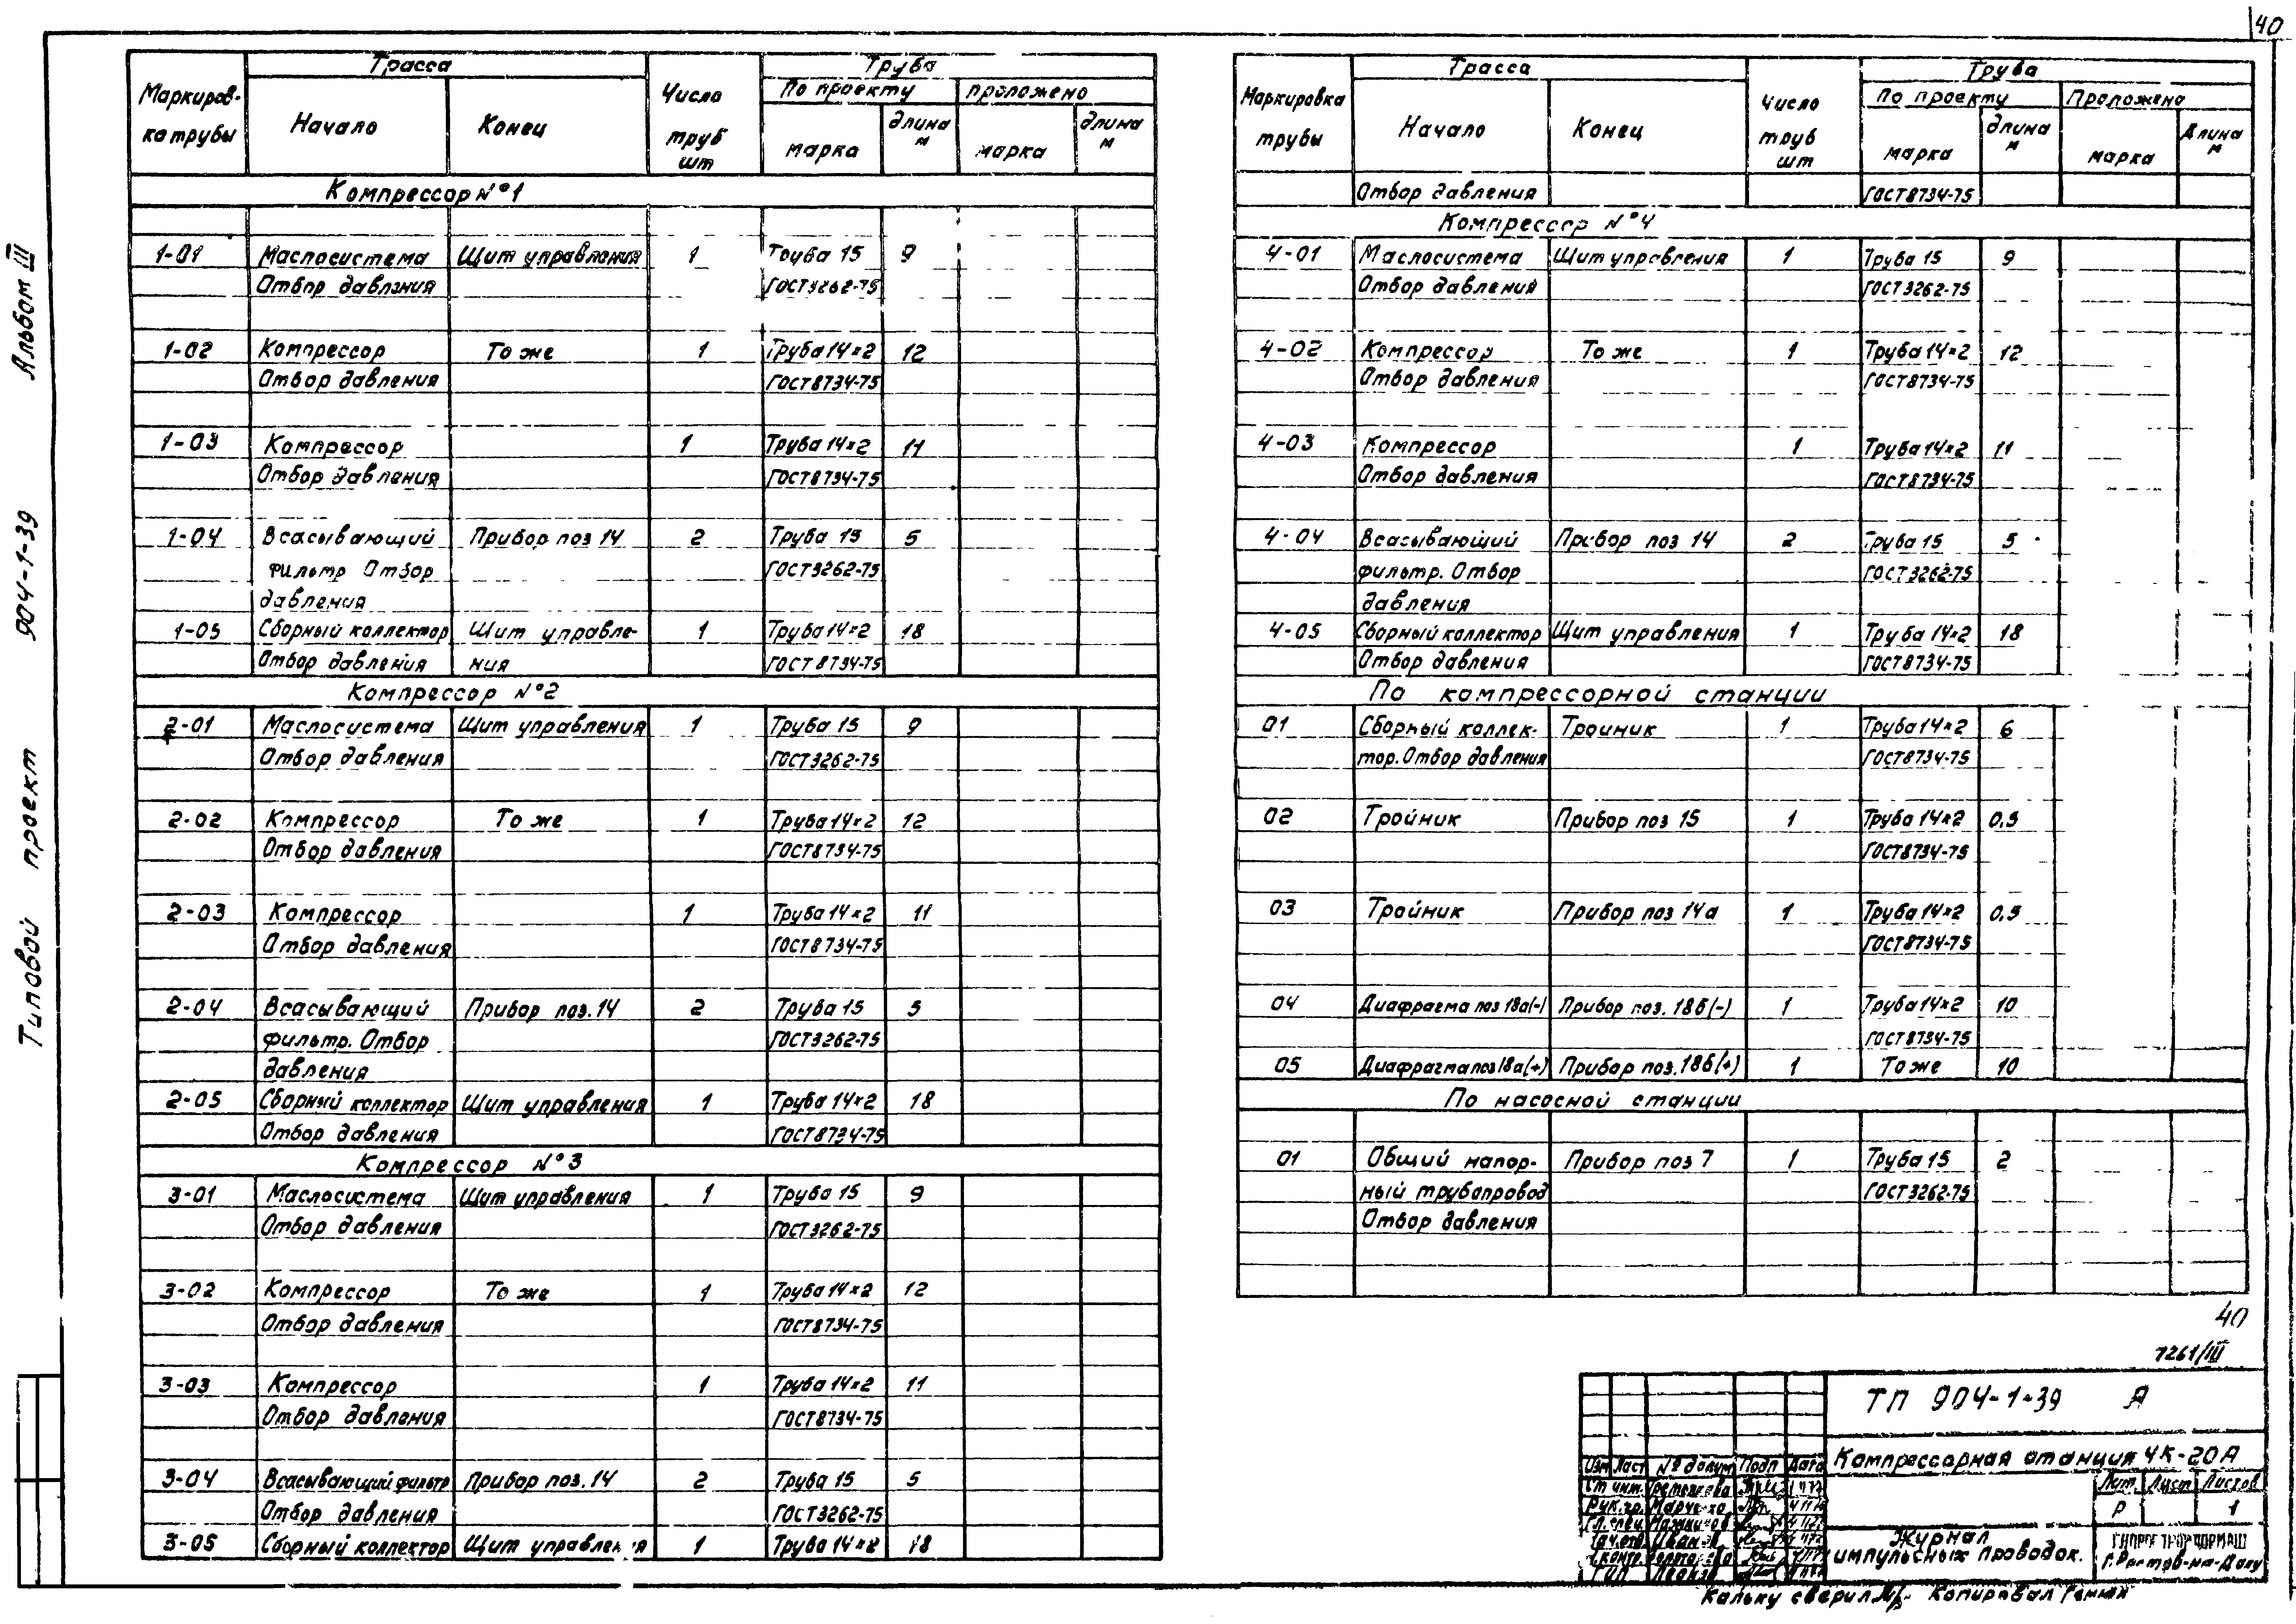 40
Альбом III
904-1-39
Типовой проект
Маркиров-
ка трубы
Трасса
Начало
Конец
Число
труб
шт
Труба
По проекту
проложено
марка
длина
м
марка
длина
м
Компрессор №1
1-01 Маслосистема Щит управления 1 Труба 15 9
Отбор давления ГОСТ3262-75
1-02 Компрессор То же 1 Труба 14×2 12
Отбор давления ГОСТ8734-75
1-03 Компрессор 1 Труба 14×2 11
Отбор давления ГОСТ8734-75
1-04 Всасывающий Прибор поз 14 2 Труба 15 5
фильтр Отбор ГОСТ3262-75
давления
1-05 Сборный коллектор Щит управле- 1 Труба 14×2 18
Отбор давления ния ГОСТ8734-75
Компрессор №2
2-01 Маслосистема Щит управления 1 Труба 15 9
Отбор давления ГОСТ3262-75
2-02 Компрессор То же 1 Труба 14×2 12
Отбор давления ГОСТ8734-75
2-03 Компрессор 1 Труба 14×2 11
Отбор давления ГОСТ8734-75
2-04 Всасывающий Прибор поз. 14 2 Труба 15 5
фильтр. Отбор ГОСТ3262-75
давления
2-05 Сборный коллектор Щит управления 1 Труба 14×2 18
Отбор давления ГОСТ8734-75
Компрессор №3
3-01 Маслосистема Щит управления 1 Труба 15 9
Отбор давления ГОСТ3262-75
3-02 Компрессор То же 1 Труба 14×2 12
Отбор давления ГОСТ8734-75
3-03 Компрессор 1 Труба 14×2 11
Отбор давления ГОСТ8734-75
3-04 Всасывающий фильтр Прибор поз. 14 2 Труба 15 5
Отбор давления ГОСТ3262-75
3-05 Сборный коллектор Щит управления 1 Труба 14×2 18
Маркировка
трубы
Трасса
Начало
Конец
Число
труб
шт
Труба
По проекту
Проложено
марка
длина
м
марка
Длина
м
Отбор давления ГОСТ8734-75
Компрессор №4
4-01 Маслосистема Щит управления 1 Труба 15 9
Отбор давления ГОСТ3262-75
4-02 Компрессор То же 1 Труба 14×2 12
Отбор давления ГОСТ8734-75
4-03 Компрессор 1 Труба 14×2 11
Отбор давления ГОСТ8734-75
4-04 Всасывающий Прибор поз 14 2 Труба 15 5
фильтр. Отбор ГОСТ3262-75
давления
4-05 Сборный коллектор Щит управления 1 Труба 14×2 18
Отбор давления ГОСТ8734-75
По компрессорной станции
01 Сборный коллек- Тройник 1 Труба 14×2 6
тор. Отбор давления ГОСТ8734-75
02 Тройник Прибор поз 15 1 Труба 14×2 0,5
ГОСТ8734-75
03 Тройник Прибор поз 14а 1 Труба 14×2 0,5
ГОСТ8734-75
04 Диафрагма поз 18а(-) Прибор поз. 18б(-) 1 Труба 14×2 10
ГОСТ8734-75
05 Диафрагма поз 18а(+) Прибор поз. 18б(+) 1 То же 10
По насосной станции
01 Общий напор- Прибор поз 7 1 Труба 15 2
ный трубопровод ГОСТ3262-75
Отбор давления
40
7261/III
ТП 904-1-39 А
Компрессорная станция 4К-20А
Изм Лист № докум Подп Дата
Лит. Лист Листов
Р 1
Ст инж.
Рук. гр.
Гл. спец.
Нач. отд. Иванов
Н. контр.
ГИП
Журнал
импульсных проводок.
г. Ростов-на-Дону
Кальку сверил
Копировал